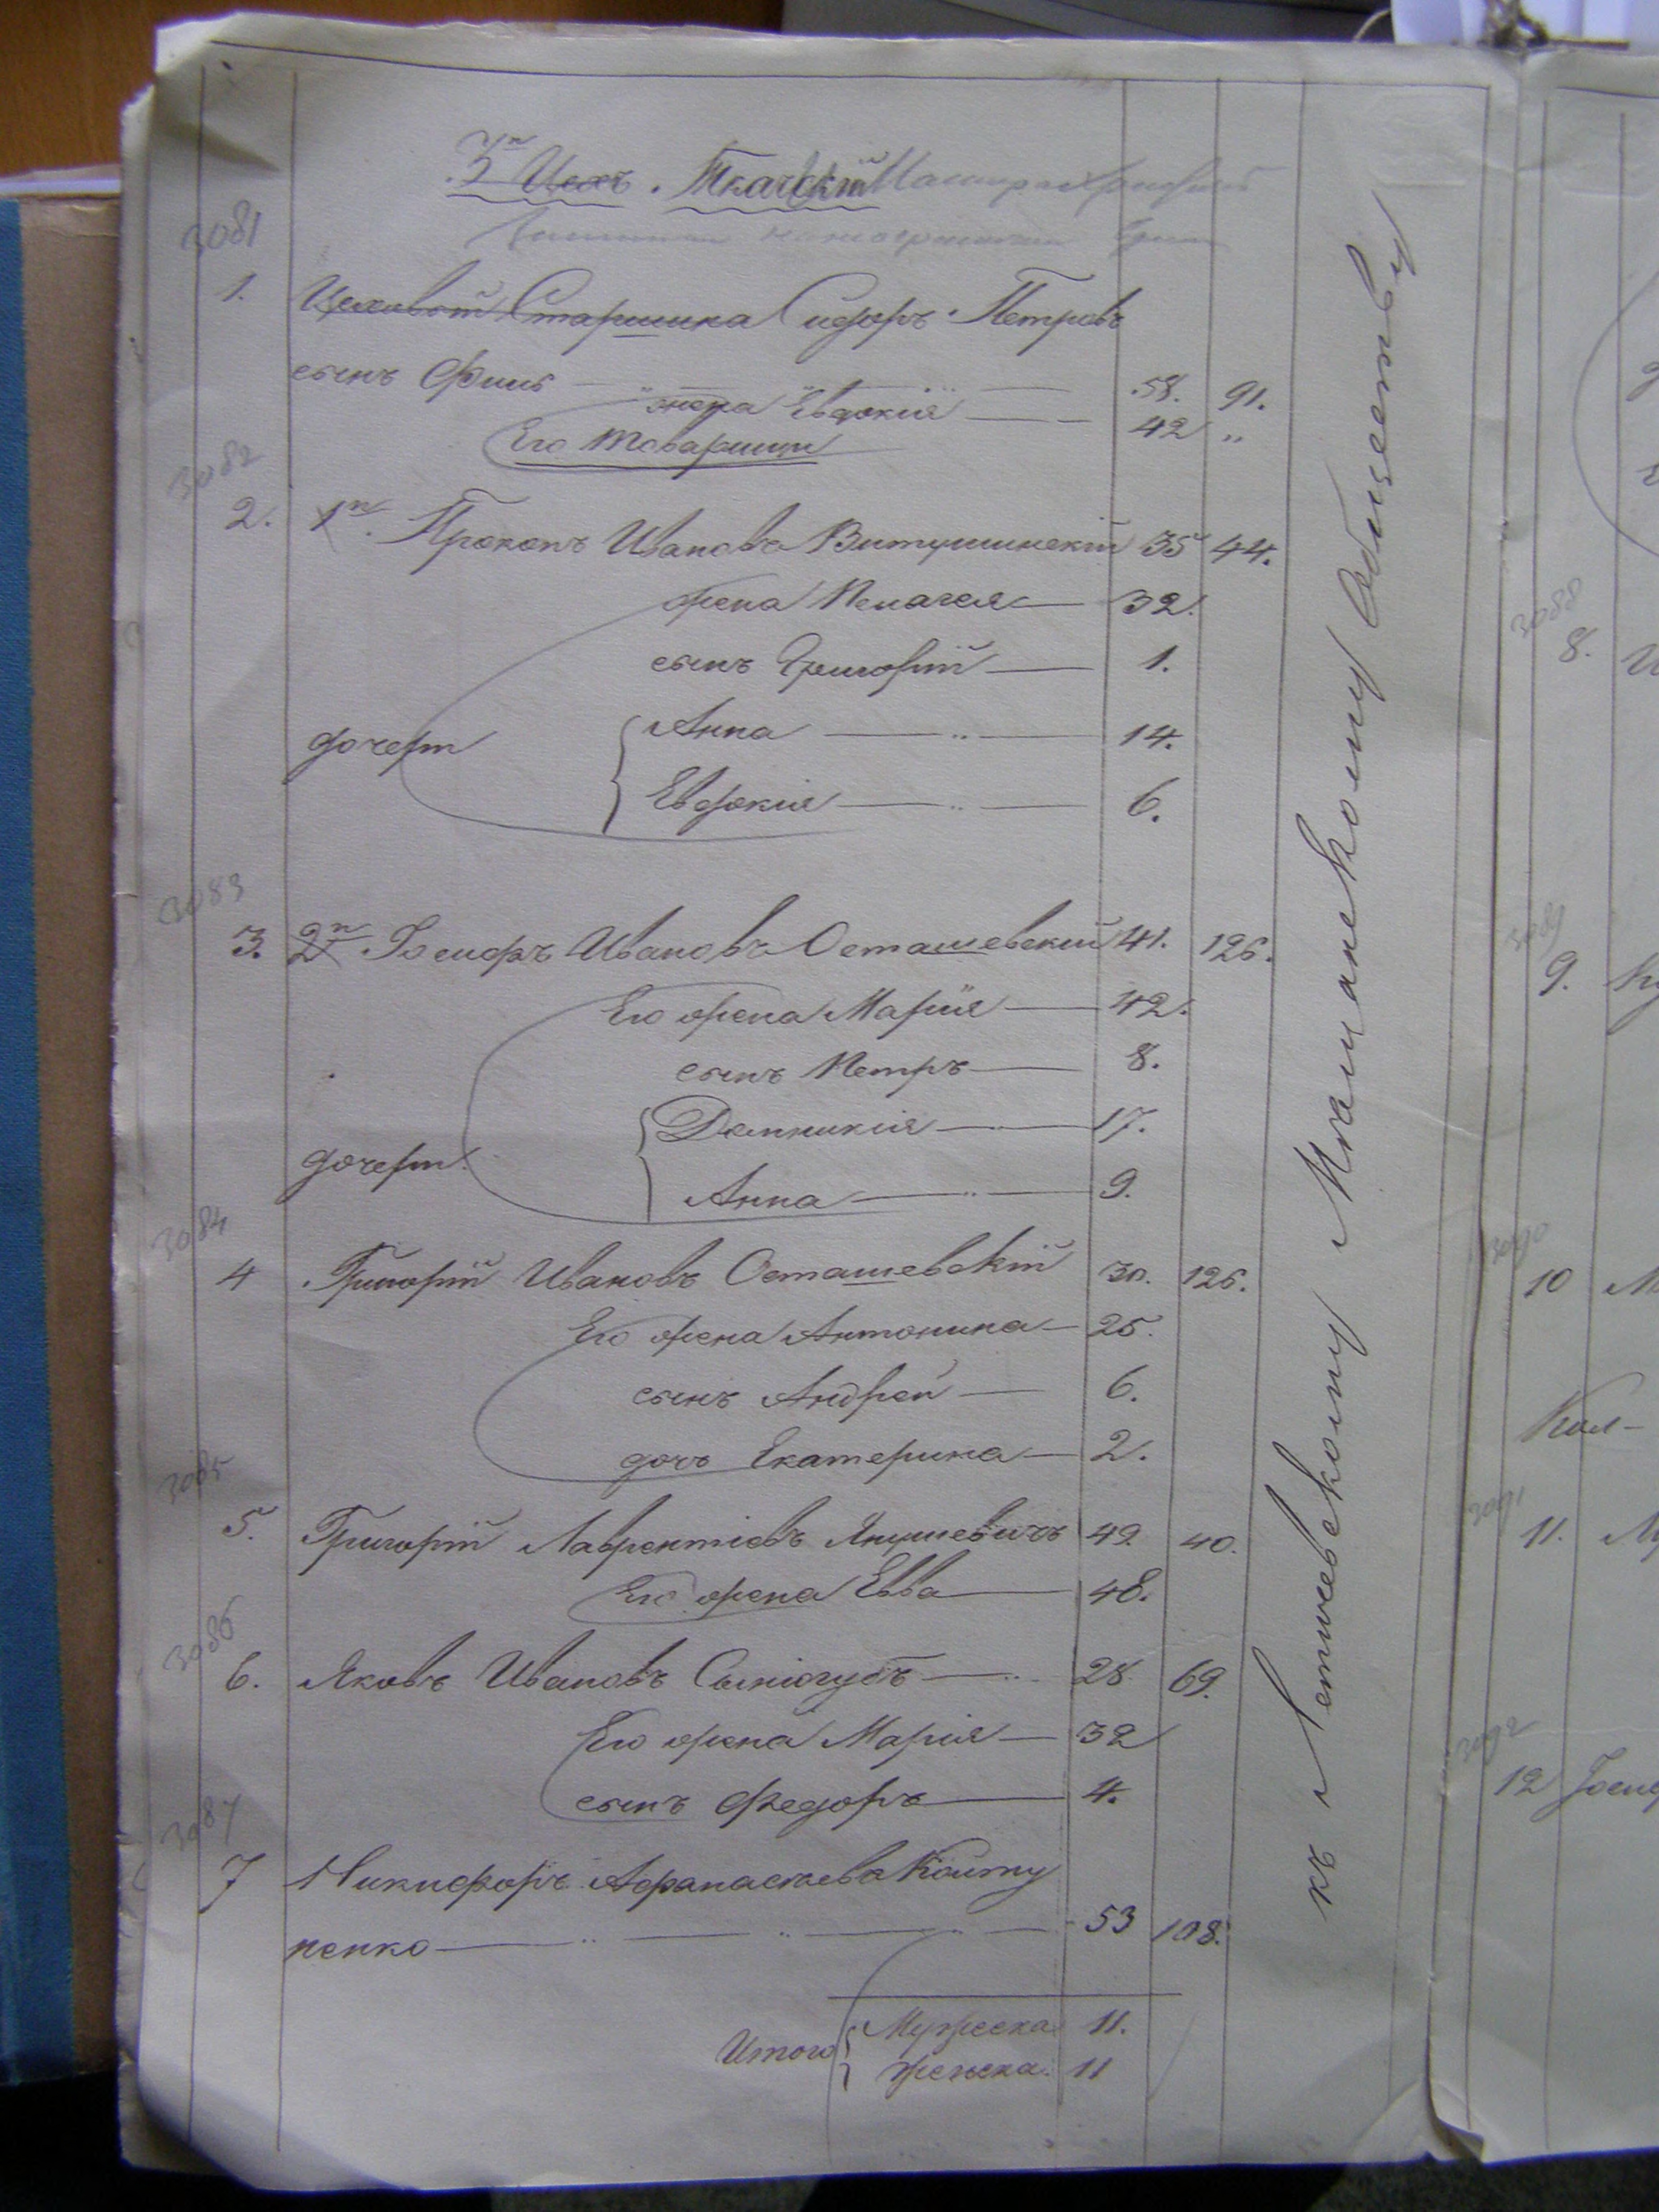 3й Цехъ. Ткачскій
3081
1. Цеховой Старшина Сидоръ Петровъ
сынъ Финь 58. 91.
жена Евдокія 42 "
Его товарищи
3082
2. 1й. Прокопъ Ивановъ Витушинскій 35 44.
жена Пелагея 32.
сынъ Григорій 1.
дочери Анна 14.
Евдокия 6.
3083
3. 2й Іосифъ Ивановъ Осташевский 41. 126.
Его жена Марія 42.
сынъ Петръ 8.
Домникия 17.
дочери
Анна 9.
3084
4 Григорій Ивановъ Осташевскій 30. 126.
Его жена Антонина 25.
сынъ Андрей 6.
дочь Екатерина 2.
3085
5. Григорій Лаврентіевъ Янушевичъ 49 40.
Его жена Евва 48.
3086
6. Яковъ Ивановъ 28. 69.
Его жена Марія 32
сынъ Федоръ 4.
3087
7 Никифоръ Афанасьевъ Колту
ненко 53 108.
Итого Мужеска 11.
Женска. 11
къ Летичевскому Мѣщанскому Обществу
3088
8.
3089
9.
3090
10
3091
11.
3092
12